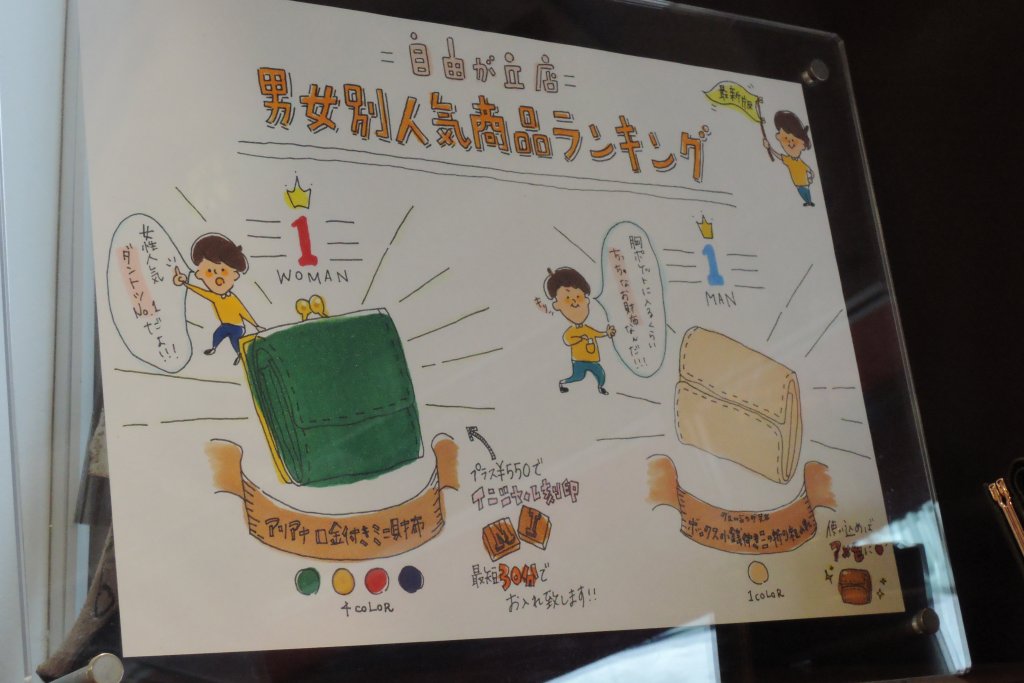 =自由が丘店=
男女別人気商品ランキング
最新版
1
WOMAN
女性人気
ダントツ
No.1
だよ!!!
1
MAN
胸ポケットに入るくらい
ちっちゃなお財布なんだ!!!
プラス¥550で
イニシャル刻印
N I
最短30分で
お入れ致します!!
アリアナ 口金付きミニ財布
4 COLOR
ボックス小銭付きミニ二つ折り
1 COLOR
使い込めば
アメ色に